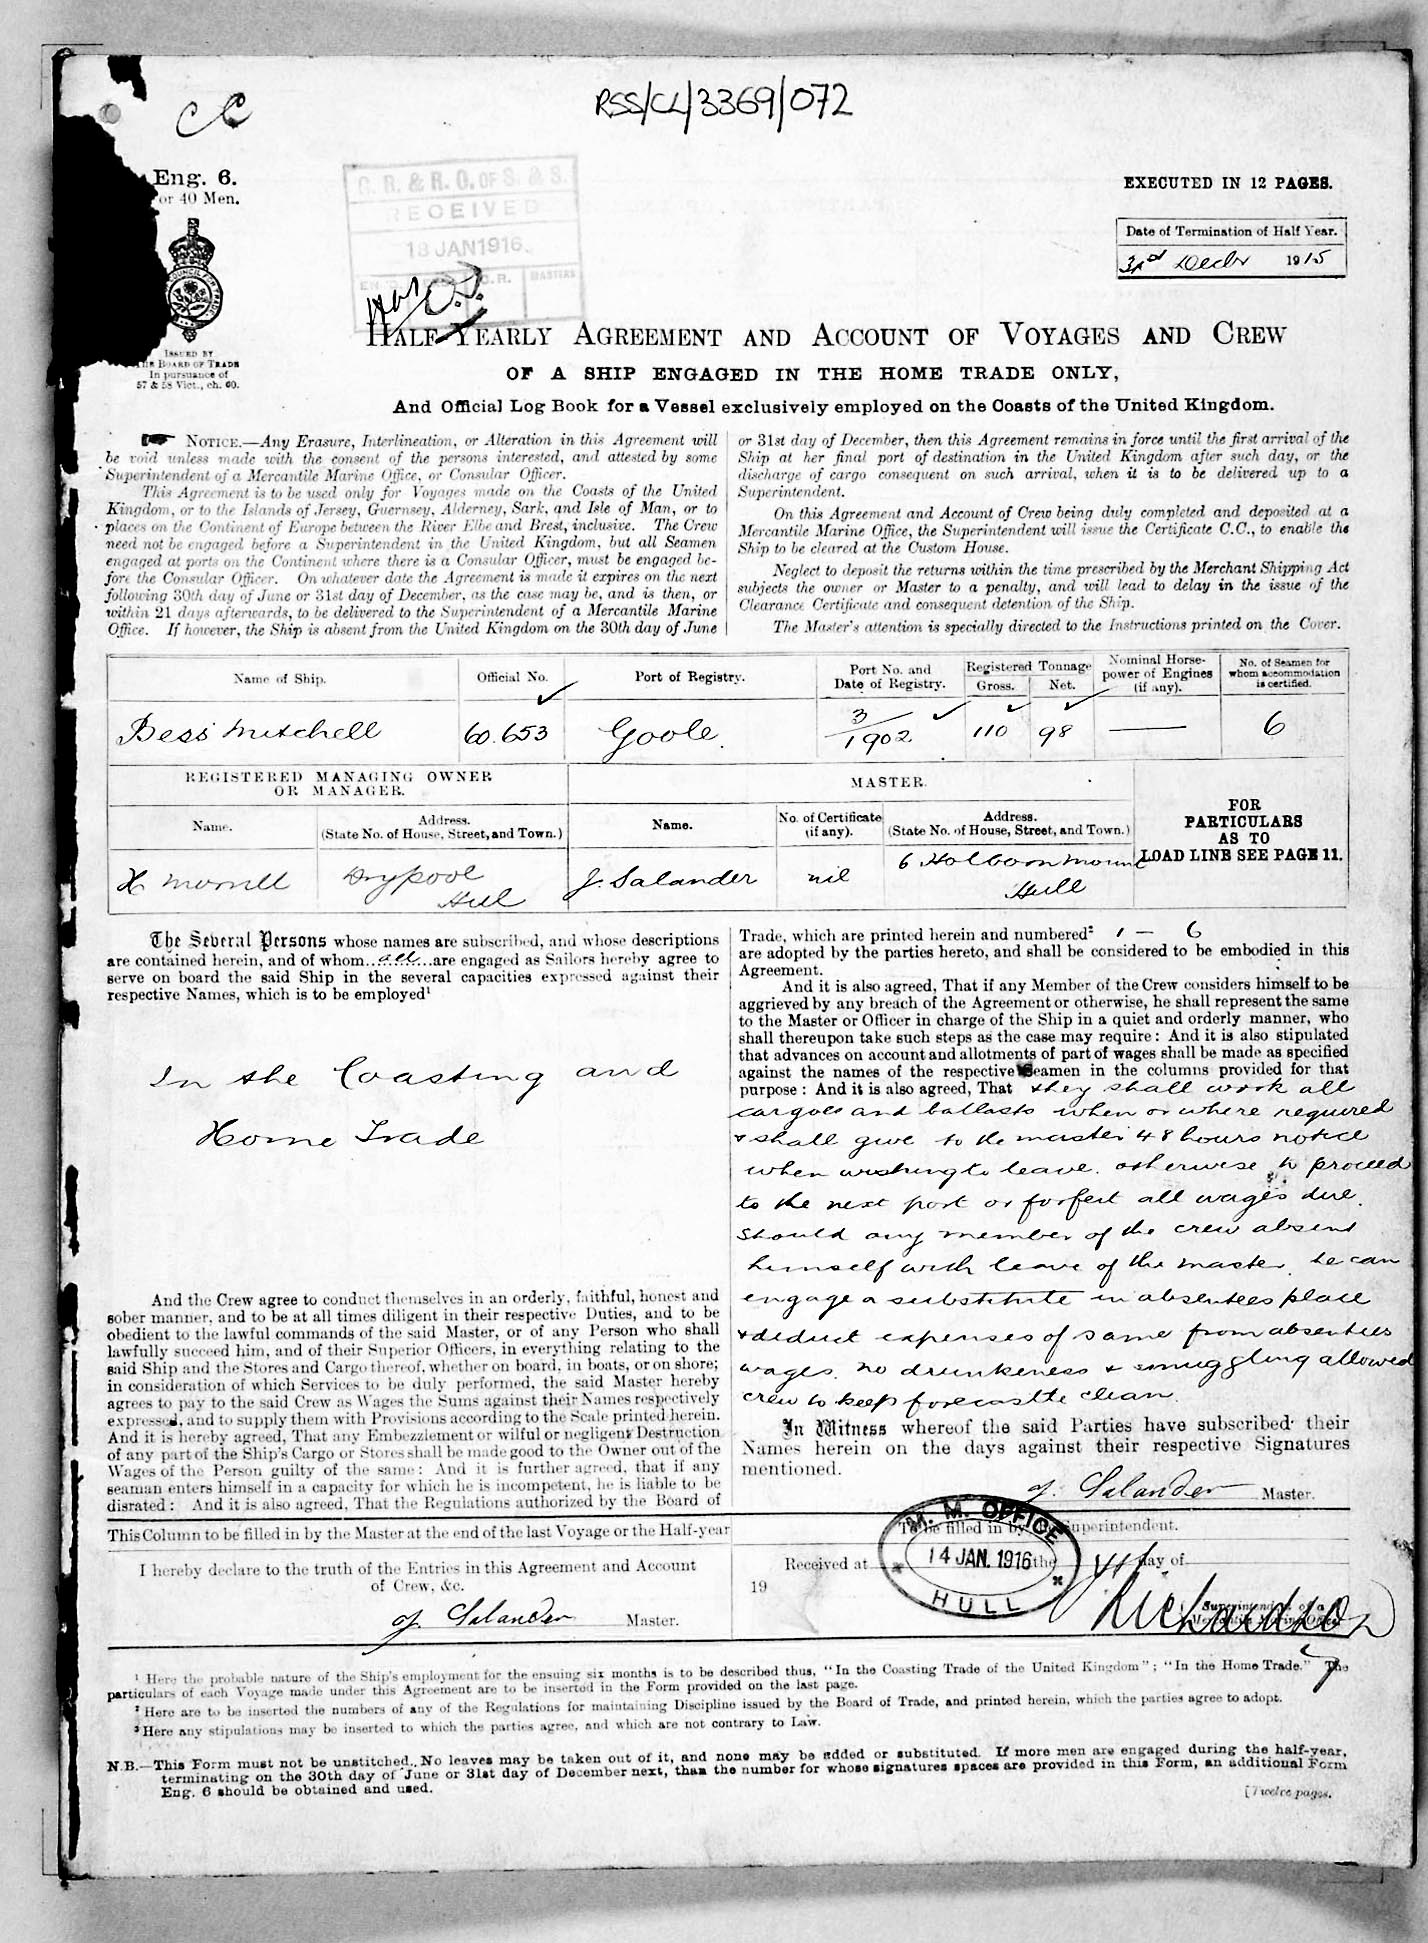 CC
RSS/CL/3369/072
Eng. 6.
or 40 Men.
ISSUED BY
THE BOARD OF TRADE
In pursuance of
57 & 58 Vict., ch. 60.
G. R. & R. O. OF S. & S.
RECEIVED
18 JAN 1916
MASTERS
EXECUTED IN 12 PAGES.
Date of Termination of Half Year.
31st Decbr 1915
HALF-YEARLY AGREEMENT AND ACCOUNT OF VOYAGES AND CREW
OF A SHIP ENGAGED IN THE HOME TRADE ONLY,
And Official Log Book for a Vessel exclusively employed on the Coasts of the United Kingdom.
NOTICE.—Any Erasure, Interlineation, or Alteration in this Agreement will
be void unless made with the consent of the persons interested, and attested by some
Superintendent of a Mercantile Marine Office, or Consular Officer.
This Agreement is to be used only for Voyages made on the Coasts of the United
Kingdom, or to the Islands of Jersey, Guernsey, Alderney, Sark, and Isle of Man, or to
places on the Continent of Europe between the River Elbe and Brest, inclusive. The Crew
need not be engaged before a Superintendent in the United Kingdom, but all Seamen
engaged at ports on the Continent where there is a Consular Officer, must be engaged be-
fore the Consular Officer. On whatever date the Agreement is made it expires on the next
following 30th day of June or 31st day of December, as the case may be, and is then, or
within 21 days afterwards, to be delivered to the Superintendent of a Mercantile Marine
Office. If however, the Ship is absent from the United Kingdom on the 30th day of June
or 31st day of December, then this Agreement remains in force until the first arrival of the
Ship at her final port of destination in the United Kingdom after such day, or the
discharge of cargo consequent on such arrival, when it is to be delivered up to a
Superintendent.
On this Agreement and Account of Crew being duly completed and deposited at a
Mercantile Marine Office, the Superintendent will issue the Certificate C.C., to enable the
Ship to be cleared at the Custom House.
Neglect to deposit the returns within the time prescribed by the Merchant Shipping Act
subjects the owner or Master to a penalty, and will lead to delay in the issue of the
Clearance Certificate and consequent detention of the Ship.
The Master's attention is specially directed to the Instructions printed on the Cover.
Name of Ship. Official No. Port of Registry. Port No. and Date of Registry. Registered Tonnage Gross. Net. Nominal Horse-power of Engines (if any). No. of Seamen for whom accommodation is certified.
Bess Mitchell 60.653 Goole. 3/1902 110 98 — 6
REGISTERED MANAGING OWNER
OR MANAGER.
MASTER.
Name. Address. (State No. of House, Street, and Town.) Name. No. of Certificate (if any). Address. (State No. of House, Street, and Town.)
FOR
PARTICULARS
AS TO
LOAD LINE SEE PAGE 11.
H Morrill Drypool Hull J. Salander nil 6 Holborn Mount Hull
The Several Persons whose names are subscribed, and whose descriptions
are contained herein, and of whom all are engaged as Sailors hereby agree to
serve on board the said Ship in the several capacities expressed against their
respective Names, which is to be employed¹
In the Coasting and
Home Trade
And the Crew agree to conduct themselves in an orderly, faithful, honest and
sober manner, and to be at all times diligent in their respective Duties, and to be
obedient to the lawful commands of the said Master, or of any Person who shall
lawfully succeed him, and of their Superior Officers, in everything relating to the
said Ship and the Stores and Cargo thereof, whether on board, in boats, or on shore;
in consideration of which Services to be duly performed, the said Master hereby
agrees to pay to the said Crew as Wages the Sums against their Names respectively
expressed, and to supply them with Provisions according to the Scale printed herein.
And it is hereby agreed, That any Embezzlement or wilful or negligent Destruction
of any part of the Ship's Cargo or Stores shall be made good to the Owner out of the
Wages of the Person guilty of the same: And it is further agreed, that if any
seaman enters himself in a capacity for which he is incompetent, he is liable to be
disrated: And it is also agreed, That the Regulations authorized by the Board of
Trade, which are printed herein and numbered² 1 — 6
are adopted by the parties hereto, and shall be considered to be embodied in this
Agreement.
And it is also agreed, That if any Member of the Crew considers himself to be
aggrieved by any breach of the Agreement or otherwise, he shall represent the same
to the Master or Officer in charge of the Ship in a quiet and orderly manner, who
shall thereupon take such steps as the case may require: And it is also stipulated
that advances on account and allotments of part of wages shall be made as specified
against the names of the respective Seamen in the columns provided for that
purpose: And it is also agreed, That they shall work all
cargoes and ballasts when or where required
& shall give to the master 48 hours notice
when wishing to leave. otherwise to proceed
to the next port or forfeit all wages due.
Should any member of the crew absent
himself with leave of the master. he can
engage a substitute in absentees place
& deduct expenses of same from absentees
wages. no drunkeness & smuggling allowed
crew to keep forecastle clean.
In Witness whereof the said Parties have subscribed their
Names herein on the days against their respective Signatures
mentioned.
J. Salander Master.
This Column to be filled in by the Master at the end of the last Voyage or the Half-year
I hereby declare to the truth of the Entries in this Agreement and Account
of Crew, &c.
J. Salander Master.
To be filled in by the Superintendent.
Received at the day of
19
M. M. OFFICE
14 JAN. 1916
HULL
Richardson
Superintendent of a
Mercantile Marine Office
¹ Here the probable nature of the Ship's employment for the ensuing six months is to be described thus, "In the Coasting Trade of the United Kingdom"; "In the Home Trade." The
particulars of each Voyage made under this Agreement are to be inserted in the Form provided on the last page.
² Here are to be inserted the numbers of any of the Regulations for maintaining Discipline issued by the Board of Trade, and printed herein, which the parties agree to adopt.
³ Here any stipulations may be inserted to which the parties agree, and which are not contrary to Law.
N.B.—This Form must not be unstitched. No leaves may be taken out of it, and none may be added or substituted. If more men are engaged during the half-year,
terminating on the 30th day of June or 31st day of December next, than the number for whose signatures spaces are provided in this Form, an additional Form
Eng. 6 should be obtained and used.
[Twelve pages.